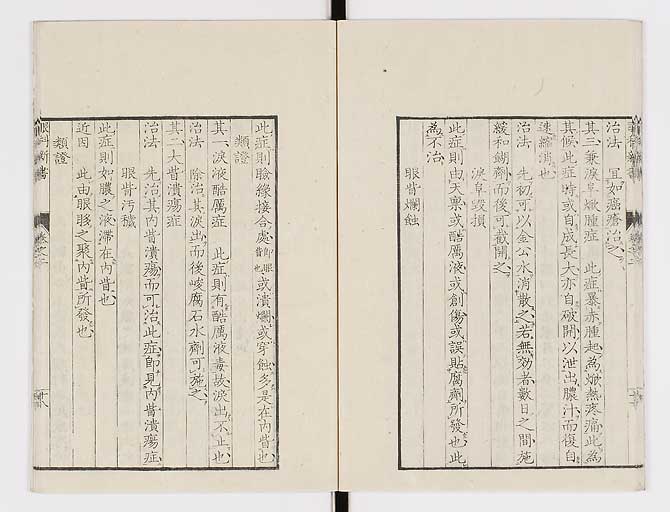 治法 宜如癌瘡治之
其三兼淚阜焮腫症 此症暴赤腫起為焮熱疼痛此為
其候此症時或自成長大亦自破開以泄出膿汁而復自
速縮消也
治法 先初可以金公水消散之若無効者數日之間施
緩和餬劑而後可截開之
淚阜毀損
此症則由天稟或酷厲液或創傷或誤貼腐劑所發也此
為不治
眼眥爛蝕
此症則瞼緣接合處即眼眥也或潰爛或穿蝕多是在內眥也
類證
其一淚液酷厲症 此症則有酷厲液毒故淚出不止也
治法 除治其淚出而後峻腐石水劑可施之
其二大眥潰瘍症
治法 先治其內眥潰瘍而可治此症即見內眥潰瘍症
眼眥污穢
此症則如膿之液滯在內眥也
近因 此由眼眵之聚內眥所發也
類證
眼科新書
卷之二
十八